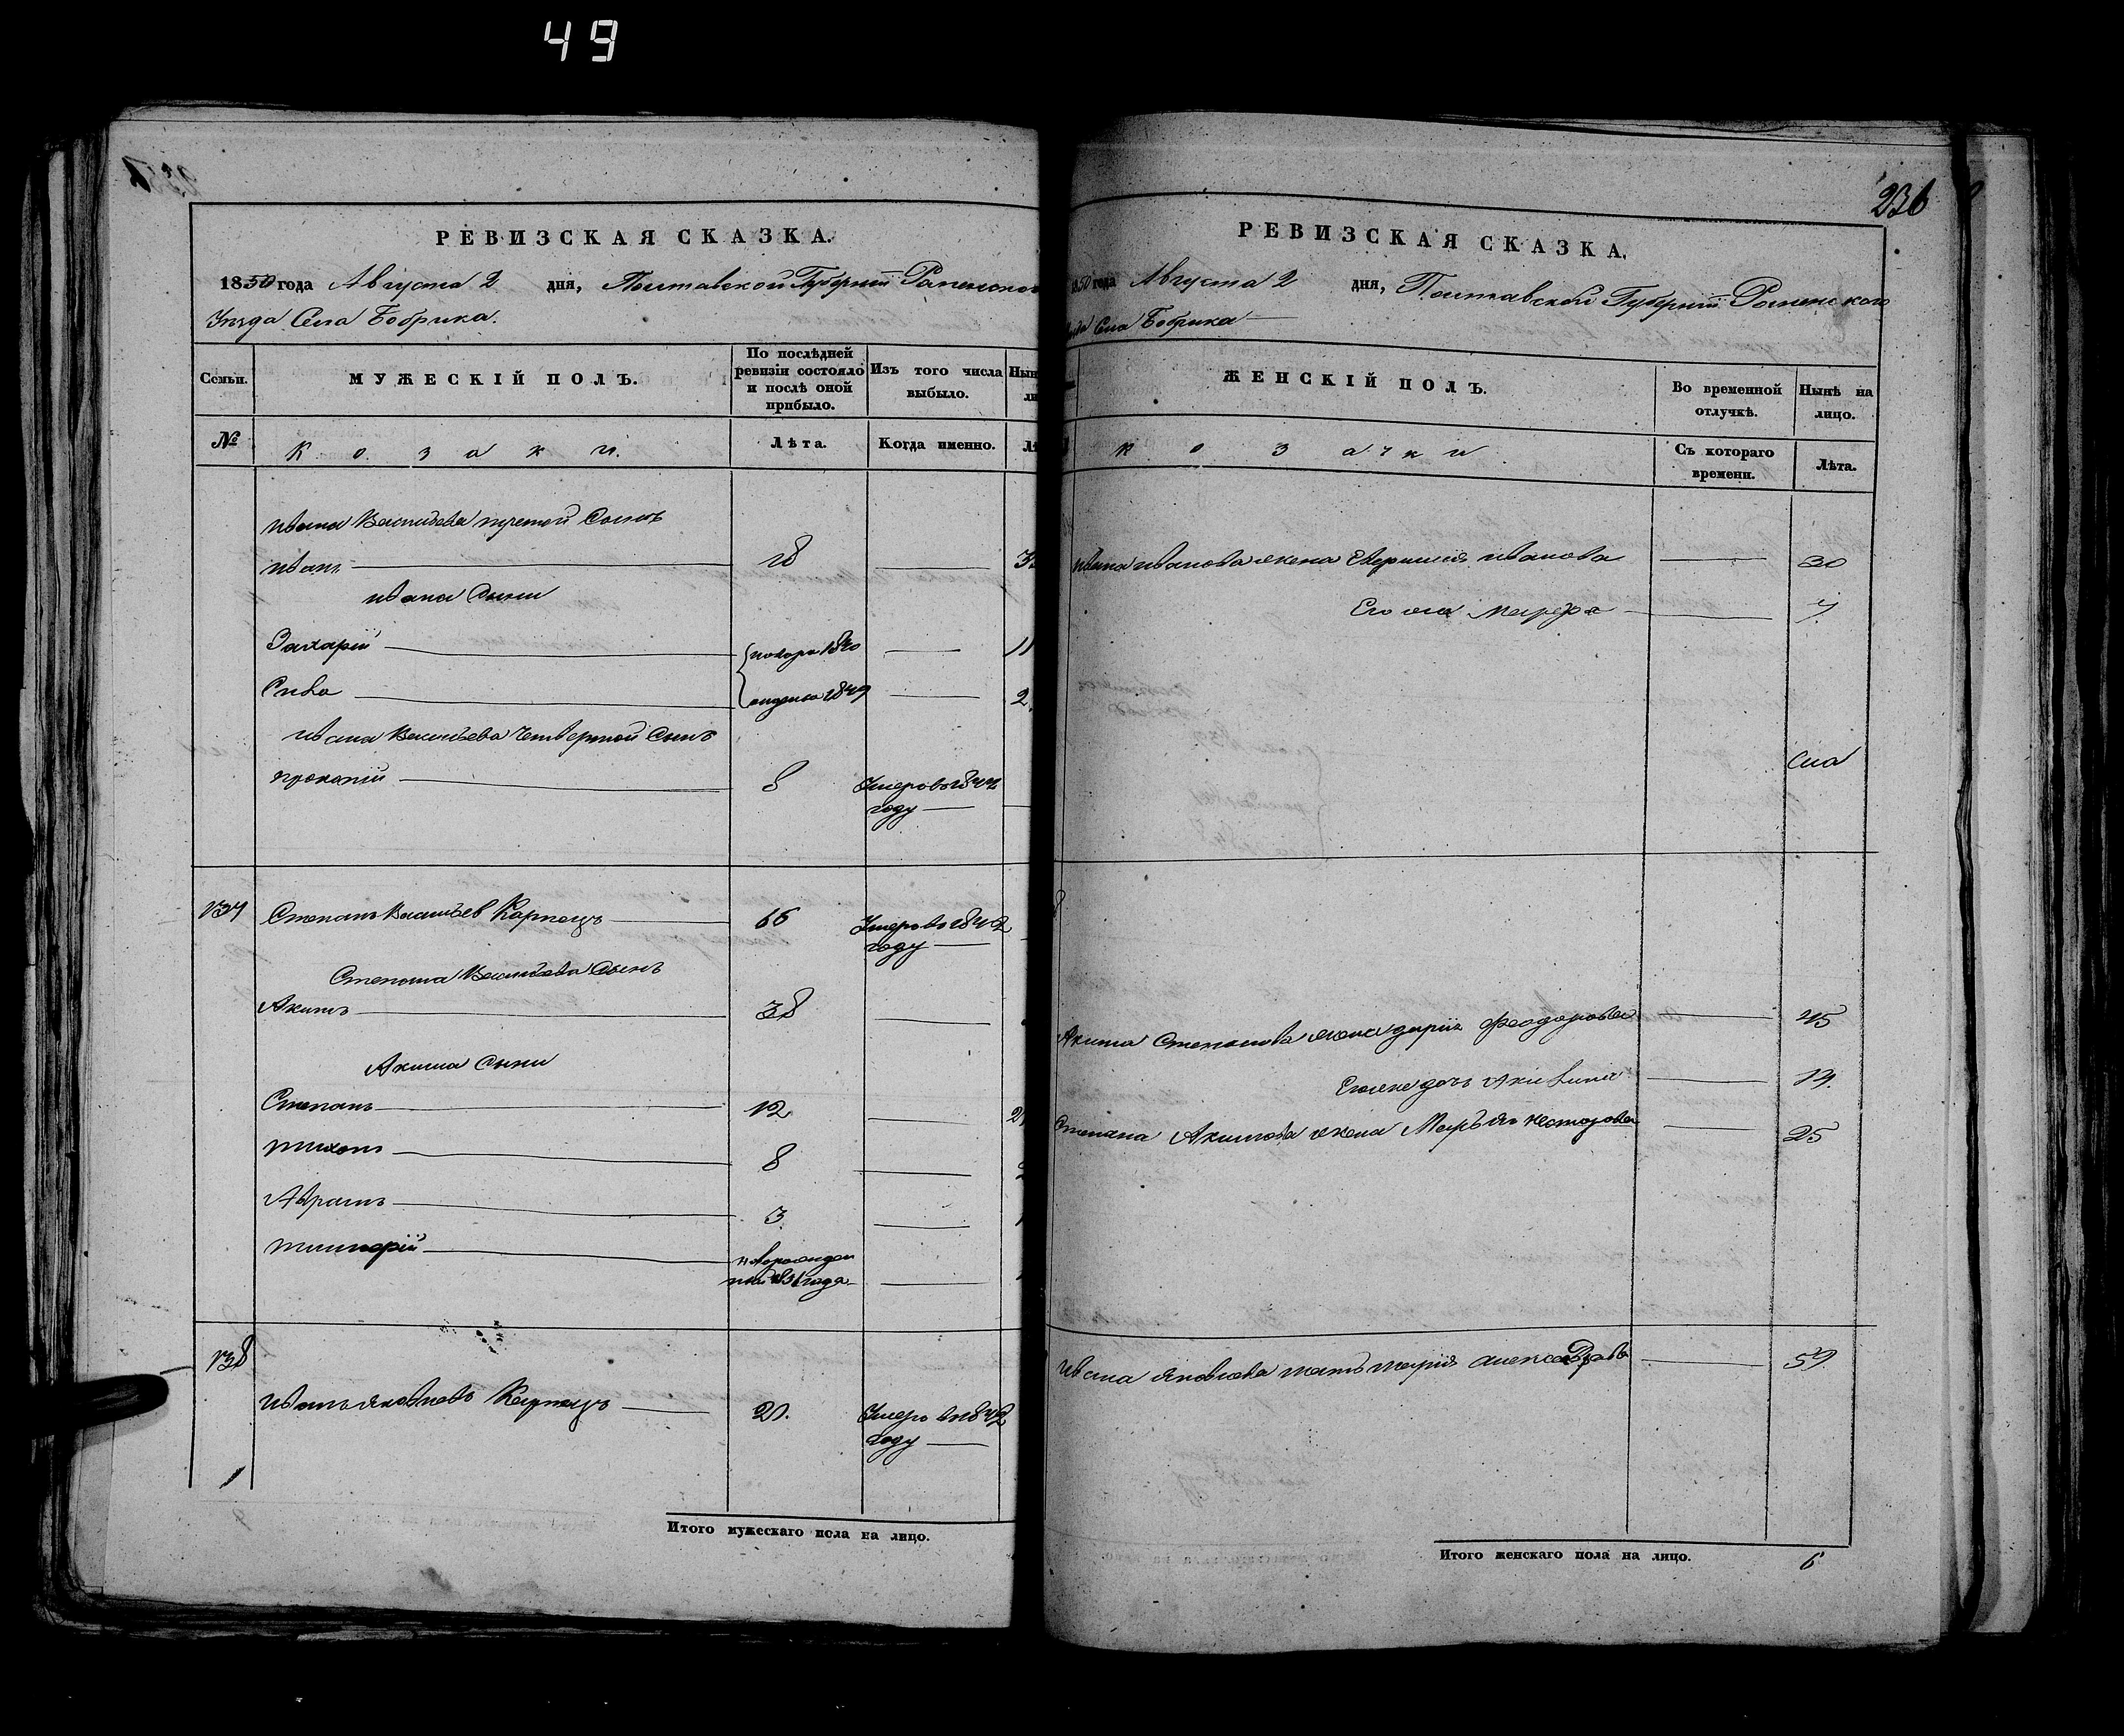 49
РЕВИЗСКАЯ СКАЗКА.
1850 года Августа 2 дня, Полтавской Губернiи Роменского
Уезда Села Бобрика.
Семьи.
МУЖЕСКІЙ ПОЛЪ.
По послѣдней ревизіи состояло и послѣ оной прибыло.
Изъ того числа выбыло.
№
Козаки.
Лѣта.
Когда именно.
Ивана Васильева третой Сынъ
Иванъ 18
Ивана Сыны
Захарій 1840 11
Сава 1849 2
Ивана Васильева Четвертой Сынъ
Прокопій 8 Умеръ въ 1844
году
137 Степанъ Васильев Карпецъ 66 Умеръ во 1842
году
Степана Васильева Сынъ
Акимъ 38
Акима Сыны
Степанъ 12
Тихонъ 8
Абрамъ 3
Григорій новорожден
ной 1836 года
138
Иванъ Яковлевъ Карпецъ 21. Умеръ въ 1842
году
Итого мужескаго пола на лицо.
236
РЕВИЗСКАЯ СКАЗКА.
1850 года Августа 2 дня, Полтавской Губернiи Роменского
Села Бобрика
ЖЕНСКІЙ ПОЛЪ.
Во временной отлучкѣ.
Нынѣ на лицо.
Козачки
Съ котораго времени.
Лѣта.
Ивана Иванова жена Иванова 30
Его дочь Марфа 7
Акима Степанова жена Дарія Феодорова 45
Его же дочь Акилина 14.
Степана Акимова жена Марья Несторова 25
Ивана Яковлева мать Марія Александрова 59
Итого женскаго пола на лицо. 6